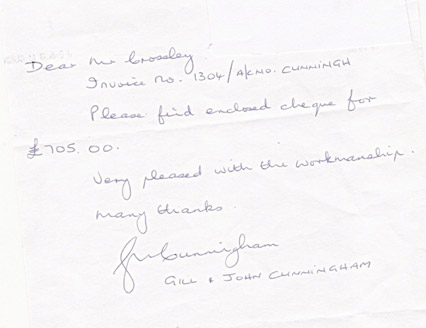 Dear Mr Crossley
Invoice No. 1304/A/CNO. CUNNINGH
Please find enclosed cheque for
£705.00.
Very pleased with the workmanship.
Many thanks.
GM Cunningham
GILL & JOHN CUNNINGHAM